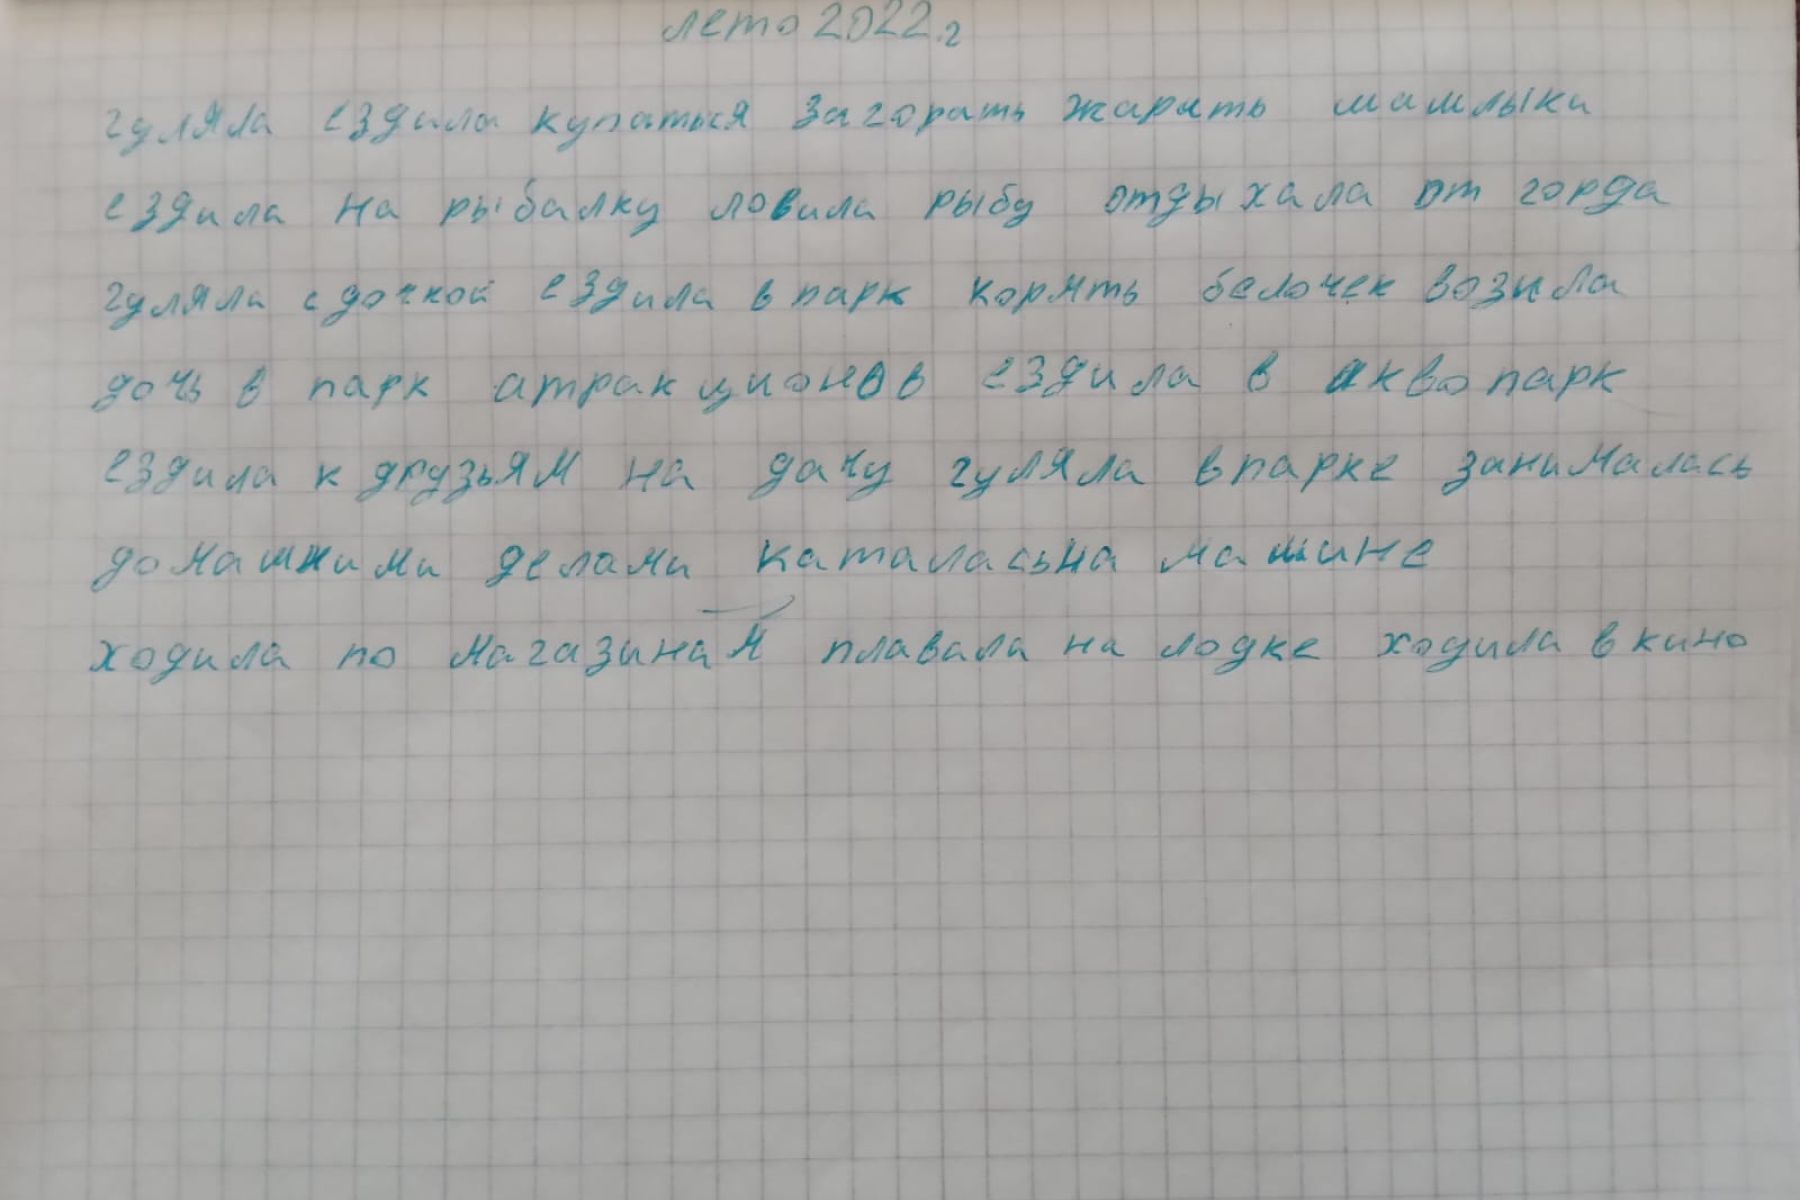 лето 2022.г
гуляла ездила купаться загорать жарить шашлыки
ездила на рыбалку ловила рыбу отдыхала от горда
гуляла с дочкой ездила в парк корить белочек возила
дочь в парк атракционов ездила в аквопарк
ездила к друзьям на дачу гуляла в парке занималась
домашними делами каталась на машине
ходила по магазинам плавала на лодке ходила в кино